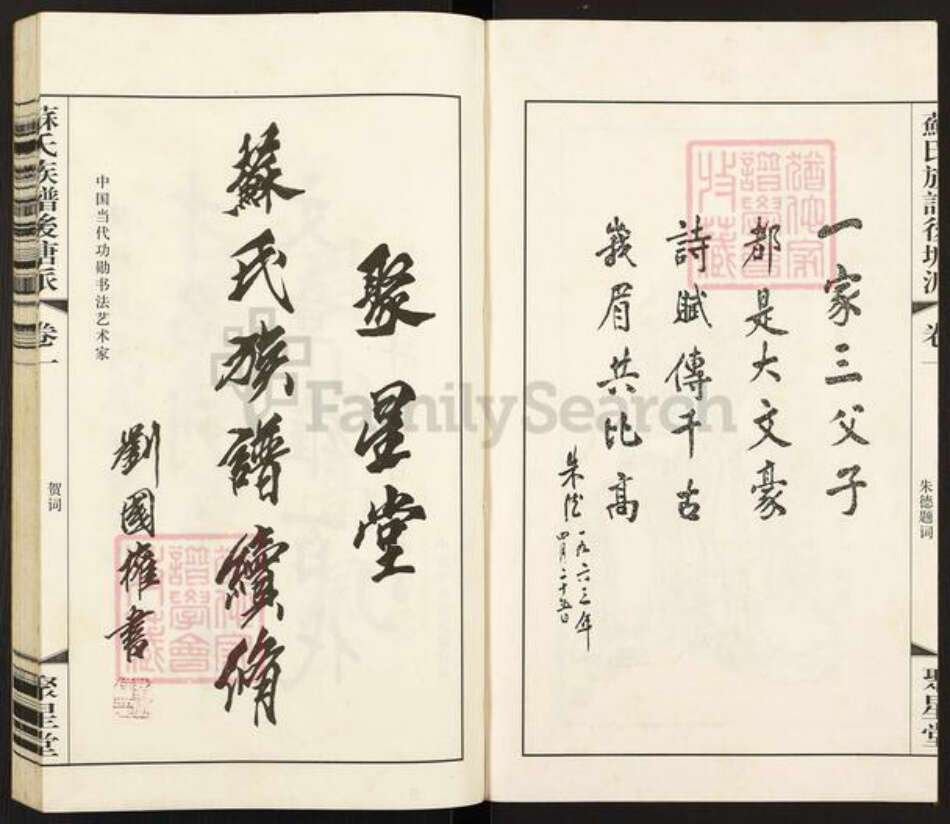 蘇氏族譜後塘派
卷一
朱德题词
聚星堂
一家三父子
都是大文豪
詩賦傳千古
峩眉共比高
朱德
一九六三年
四月二十五日
聚星堂
蘇氏族譜續脩
中国当代功勋书法艺术家
劉國權書
蘇氏族譜後塘派
卷一
贺词
聚星堂
FamilySearch
譜學會
收藏